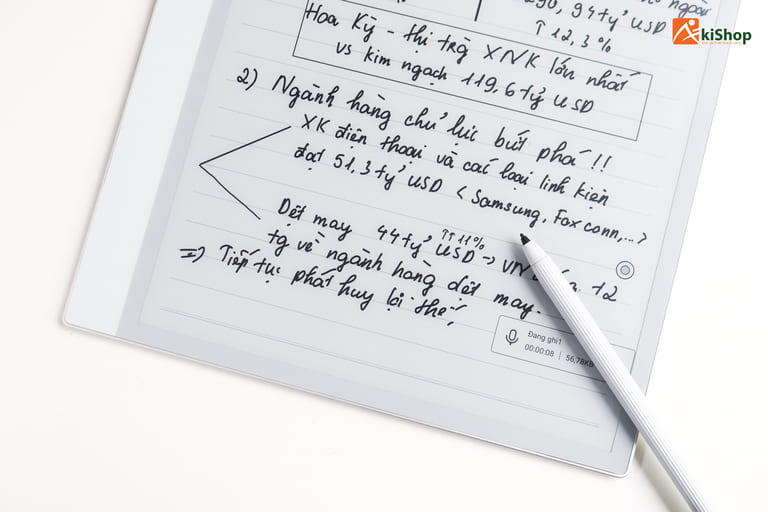 kiShop
ngoài
290, 94 tỷ USD
↑ 12,3%
Hoa Kỳ - thị trg XNK lớn nhất
vs kim ngạch 119,6 tỷ USD
2) Ngành hàng chủ lực bứt phá !!
XK điện thoại và các loại linh kiện
đạt 51,3 tỷ USD < Samsung, Foxconn,...>
Dệt may 44 tỷ USD ↑↑ 11% → VN 12
tg về ngành hàng dệt may.
=> Tiếp tục phát huy lợi thế,
Đang ghi1
00:00:08 | 56,78KB